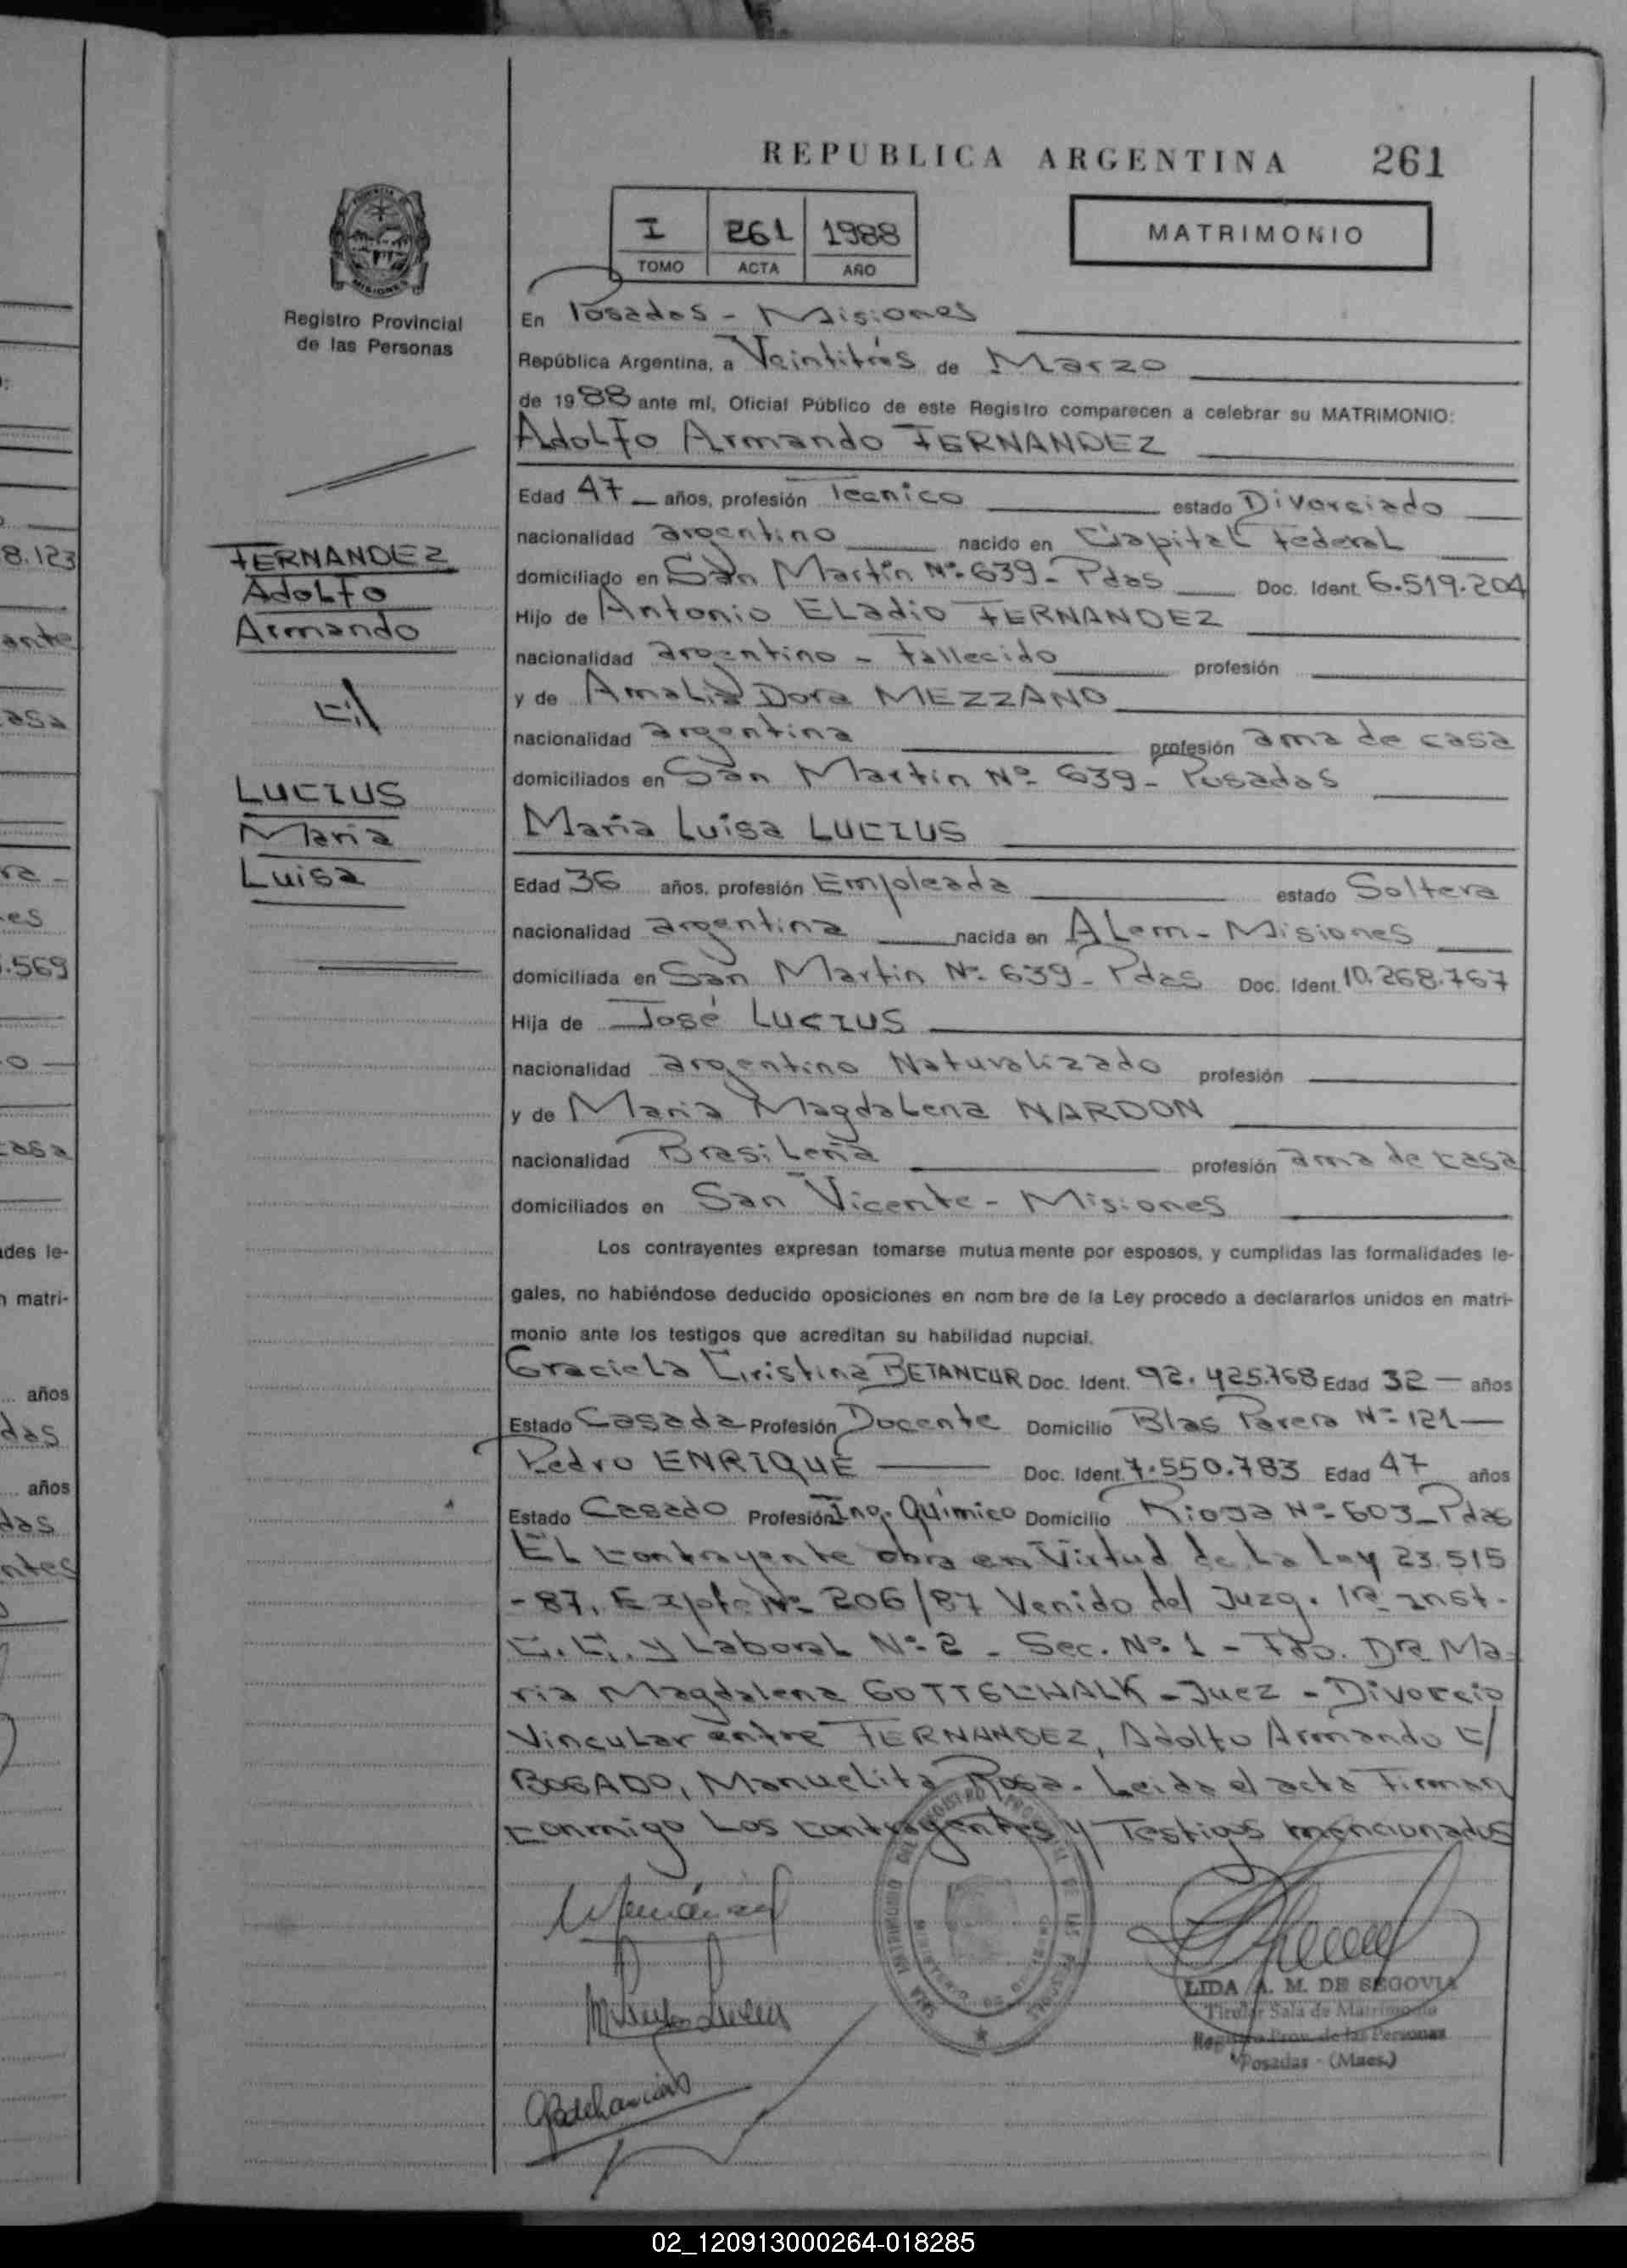 REPUBLICA ARGENTINA 261
I 261 1988
TOMO ACTA AÑO
MATRIMONIO
Registro Provincial
de las Personas
En Posadas - Misiones
República Argentina, a Veintitrés de Marzo
de 1988 ante mí, Oficial Público de este Registro comparecen a celebrar su MATRIMONIO:
Adolfo Armando FERNANDEZ
Edad 47 años, profesión Tecnico estado Divorciado
nacionalidad argentino nacido en Capital Federal
domiciliado en San Martín Nº 639 - Pdas Doc. Ident. 6.519.204
Hijo de Antonio Eladio FERNANDEZ
nacionalidad argentino - Fallecido profesión
y de Amalia Dora MEZZANO
nacionalidad argentina profesión ama de casa
domiciliados en San Martin Nº 639 - Posadas
Maria Luisa LUCIUS
Edad 36 años, profesión Empleada estado Soltera
nacionalidad argentina nacida en Alem - Misiones
domiciliada en San Martin Nº 639 - Pdas Doc. Ident. 10.268.767
Hija de José LUCIUS
nacionalidad argentino Naturalizado profesión
y de Maria Magdalena NARDON
nacionalidad Brasileña profesión ama de casa
domiciliados en San Vicente - Misiones
Los contrayentes expresan tomarse mutuamente por esposos, y cumplidas las formalidades le-
gales, no habiéndose deducido oposiciones en nombre de la Ley procedo a declararlos unidos en matri-
monio ante los testigos que acreditan su habilidad nupcial.
Graciela Cristina BETANCUR Doc. Ident. 92.425.768 Edad 32 años
Estado Casada Profesión Docente Domicilio Blas Parera Nº 121
Pedro ENRIQUE Doc. Ident. 7.550.783 Edad 47 años
Estado Casado Profesión Ing. Químico Domicilio Rioja Nº 603 - Pdas
El contrayente obra en Virtud de la Ley 23.515
- 87, Expte Nº 206/87 Venido del Juzg. 1ra Inst.
C.C. y Laboral Nº 2 - Sec. Nº 1 - Fdo. Dra Ma-
ria Magdalena GOTTSCHALK - Juez - Divorcio
Vincular entre FERNANDEZ, Adolfo Armando C/
BOGADO, Manuelita Rosa. Leida el acta Firman
conmigo Los contrayentes y Testigos mencionados
FERNANDEZ
Adolfo
Armando
C/
LUCIUS
Maria
Luisa
LIDA A. M. DE SEGOVIA
Titular Sala de Matrimonio
Registro Prov. de las Personas
Posadas - (Mnes.)
8.123
ante
casa
ra -
es
.569
o
casa
des le-
n matri-
años
das
años
das
ntes
02_120913000264-018285